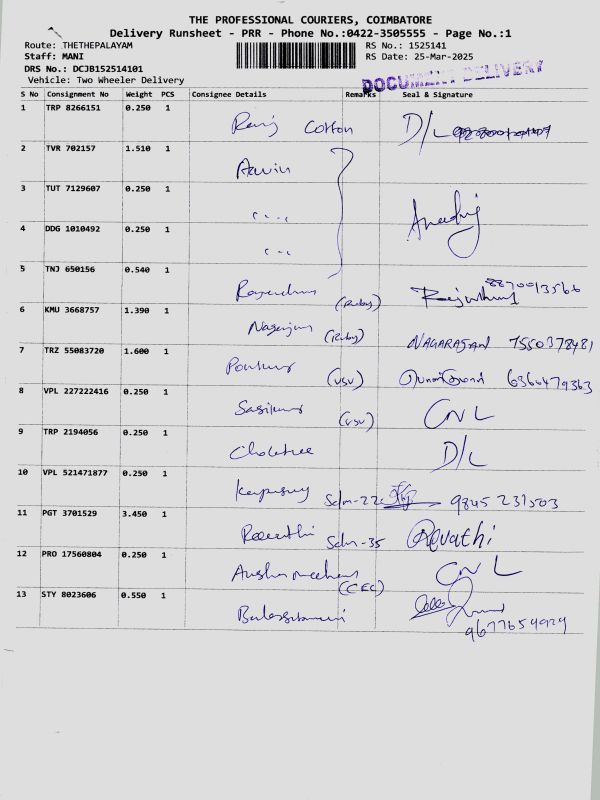 THE PROFESSIONAL COURIERS, COIMBATORE
Delivery Runsheet - PRR - Phone No.:0422-3505555 - Page No.:1
Route: THETHEPALAYAM RS No.: 1525141
Staff: MANI RS Date: 25-Mar-2025
DRS No.: DCJB152514101
Vehicle: Two Wheeler Delivery
DOCUMENT DELIVERY
S No Consignment No Weight PCS Consignee Details Remarks Seal & Signature
1 TRP 8266151 0.250 1 Cotton D/L
2 TVR 702157 1.510 1
3 TUT 7129607 0.250 1
4 DDG 1010492 0.250 1
5 TNJ 650156 0.540 1 (Ruby) 8870013566
6 KMU 3668757 1.390 1 (Ruby) NAGARAJAN 7550378481
7 TRZ 55083720 1.600 1 (VSV) 6366479363
8 VPL 227222416 0.250 1 Sasikumar (VSV) CNL
9 TRP 2194056 0.250 1 D/L
10 VPL 521471877 0.250 1 Sdm-22c 9845 231503
11 PGT 3701529 3.450 1 Revathi Sdm-35 Revathi
12 PRO 17560804 0.250 1 (CEC) CNL
13 STY 8023606 0.550 1 9677654929